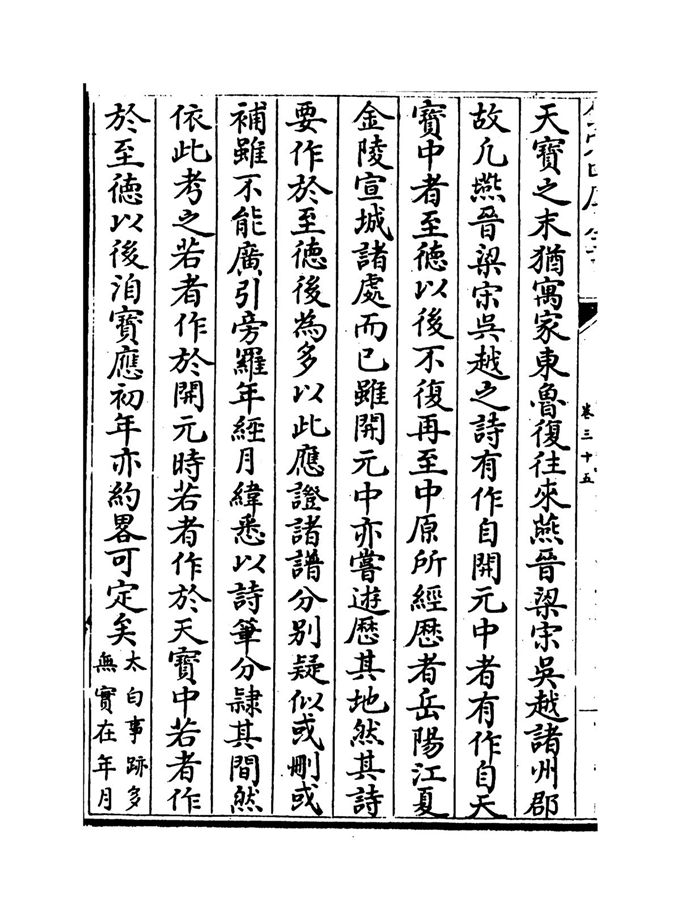 卷三十五
天寶之末猶寓家東魯復往來燕晉梁宋吳越諸州郡
故凡燕晉梁宋吳越之詩有作自開元中者有作自天
寶中者至徳以後不復再至中原所經歴者岳陽江夏
金陵宣城諸處而已雖開元中亦嘗遊歴其地然其詩
要作於至徳後為多以此應證諸譜分别疑似或刪或
補雖不能廣引旁羅年經月緯悉以詩筆分隷其間然
依此考之若者作於開元時若者作於天寶中若者作
於至徳以後洎寶應初年亦約畧可定矣
太白事跡多
無實在年月